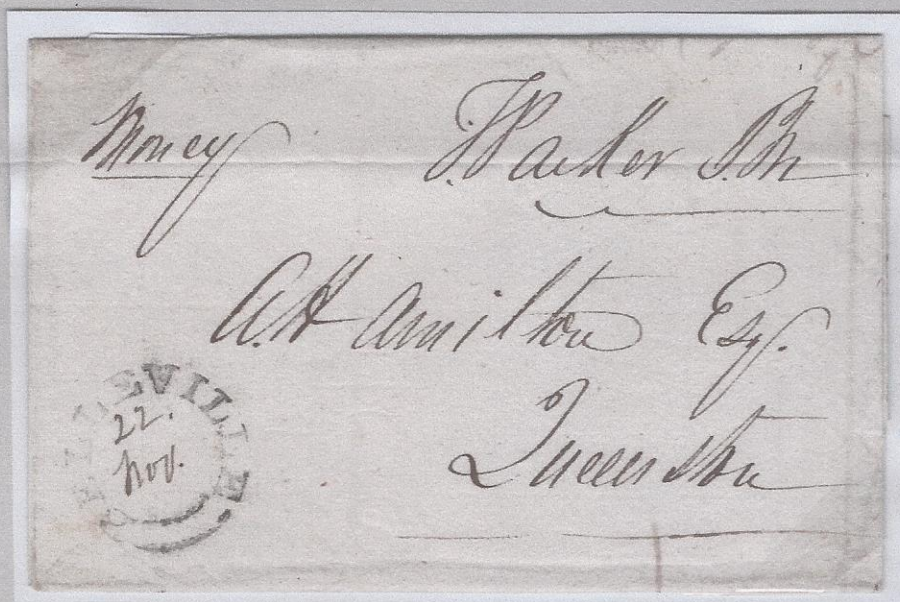 Money
T. Parker P.M
A. Hamilton Esq.
Queenston
BELLEVILLE
22.
Nov.